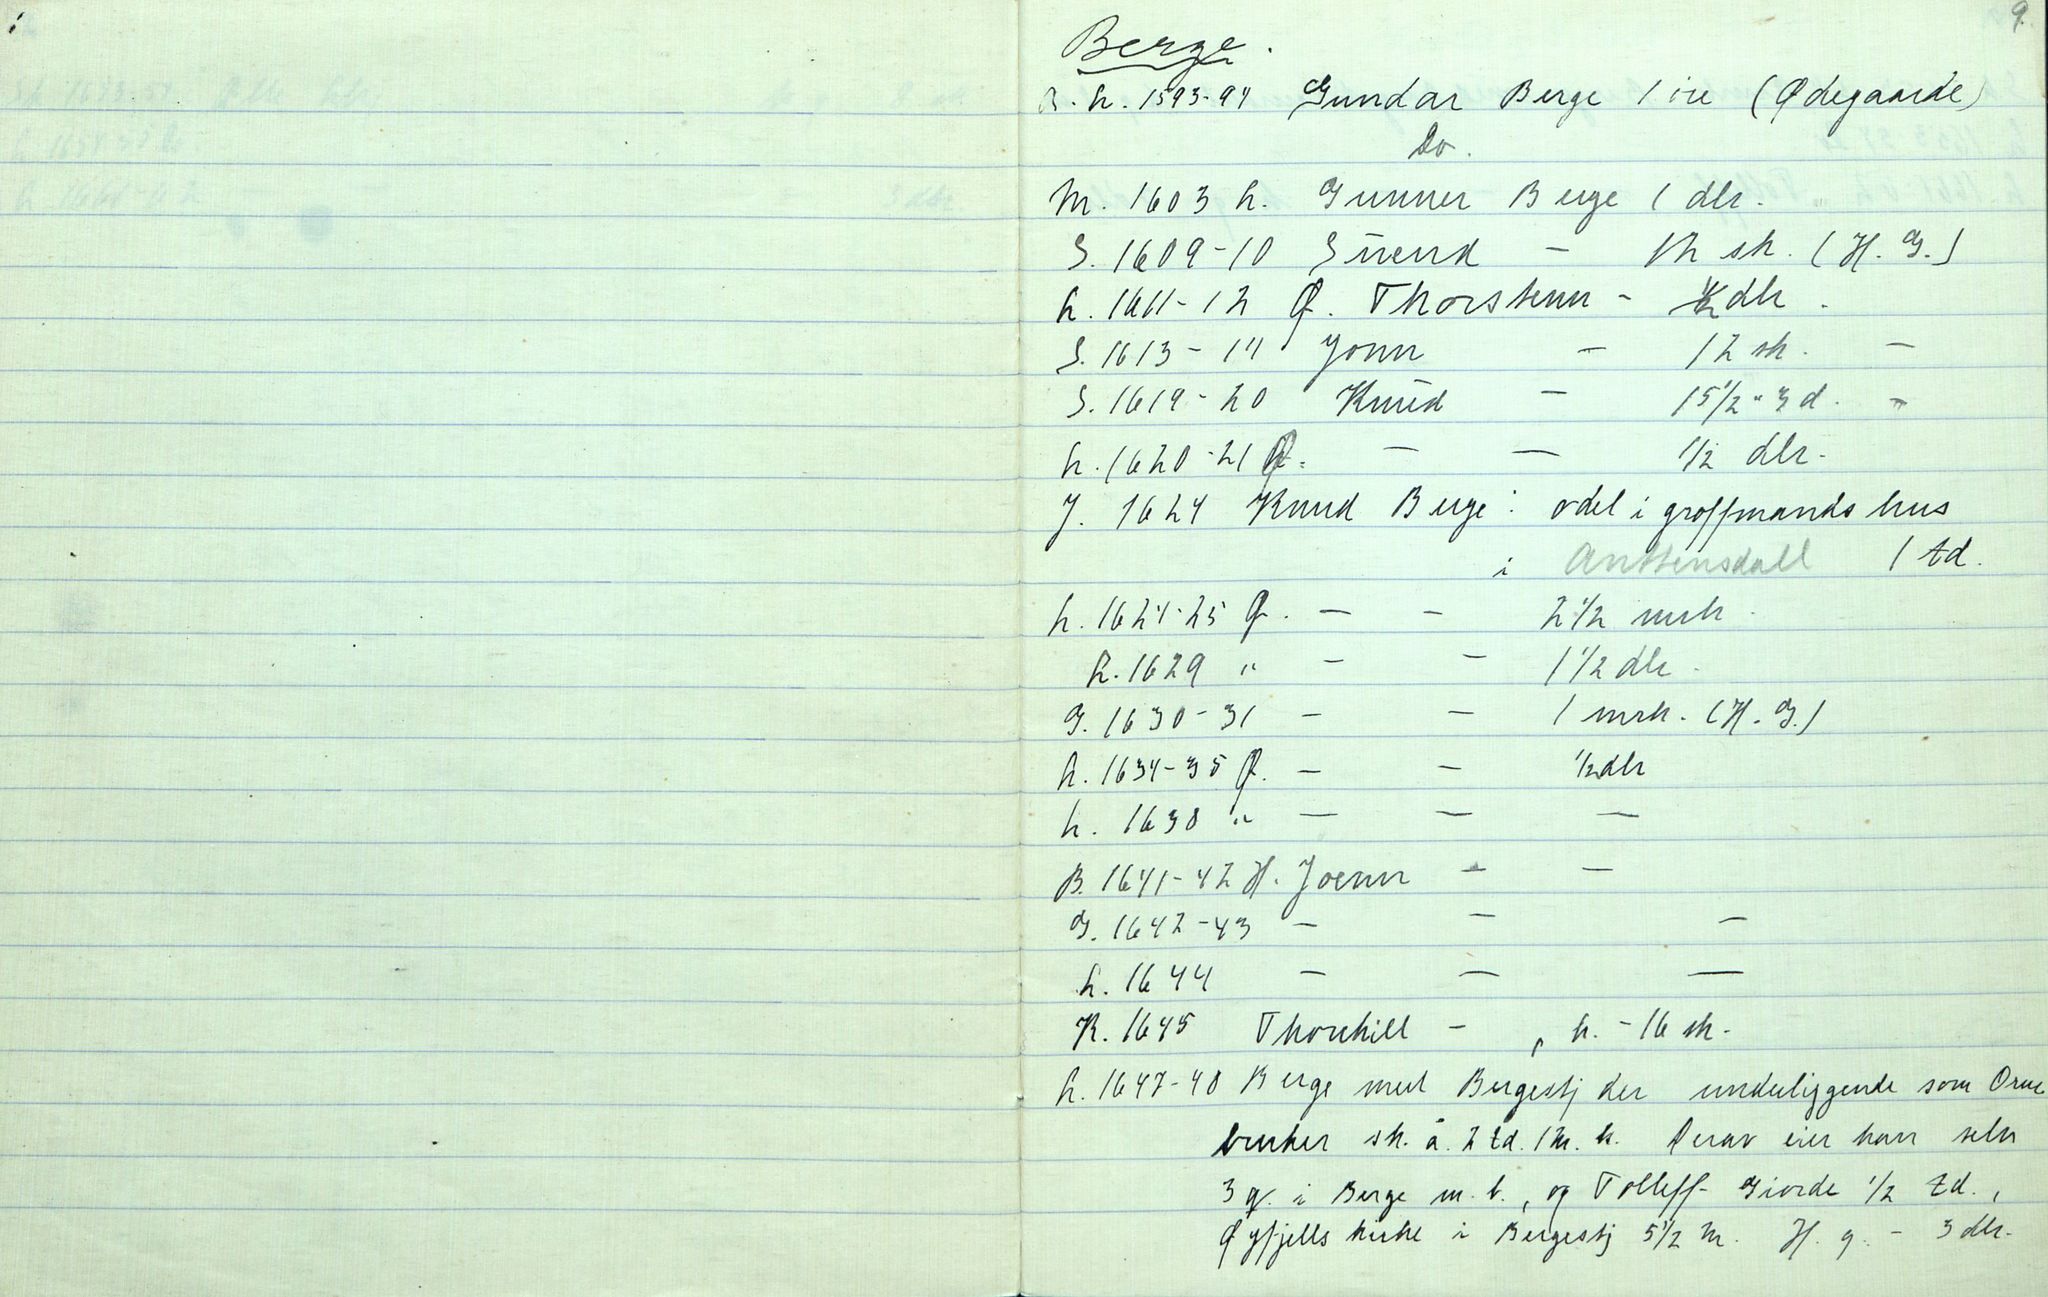 9.
Berge.
L. h. 1593-94 Gundar Berge 1 øre (Ødegaarde)
Do.
M. 1603 h. Gunner Berge 1 dlr.
S. 1609-10 Suend - 12 sk. (H. G.)
h. 1611-12 Q. Thorstenn - ½ dlr.
S. 1613-14 Jonn - 12 sk. -
S. 1619-20 Knud - 15½ " 3 d. -
h. 1620-21 Q. - - ½ dlr.
J. 1624 Knud Berge: odel i groffmands hus
i Anttensdall 1 td.
h. 1624-25 Q. - - 2½ mrk.
h. 1629 " - - 1½ dlr.
G. 1630-31 - - 1 mrk. (H. G.)
h. 1634-35 Q. - - ½ dlr
h. 1638 " - - -
B. 1641-42 H. Joenn - -
G. 1642-43 - - -
h. 1644 - - -
K. 1645 Thorchill - , h. - 16 sk.
h. 1647-48 Berge med Bergestj der underliggende som Orm
bruker sk. å. 2 td. 1 m. k. Derav eier han selv
3 q. i Berge m. b., og Tolleff Giorde ½ td.,
Øyfjells kirke i Bergestj 5½ m. H. g. - 3 dlr.